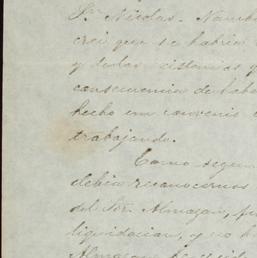 Sr. Nicolas. Nambo
creí que se habria
y dadas cistancias q
consecuencia de habe
hecho un convenio
trabajando.
Como segun
debia reconocernos
del Sor. Almazan, fu
liquidacion, y no h
Almazan